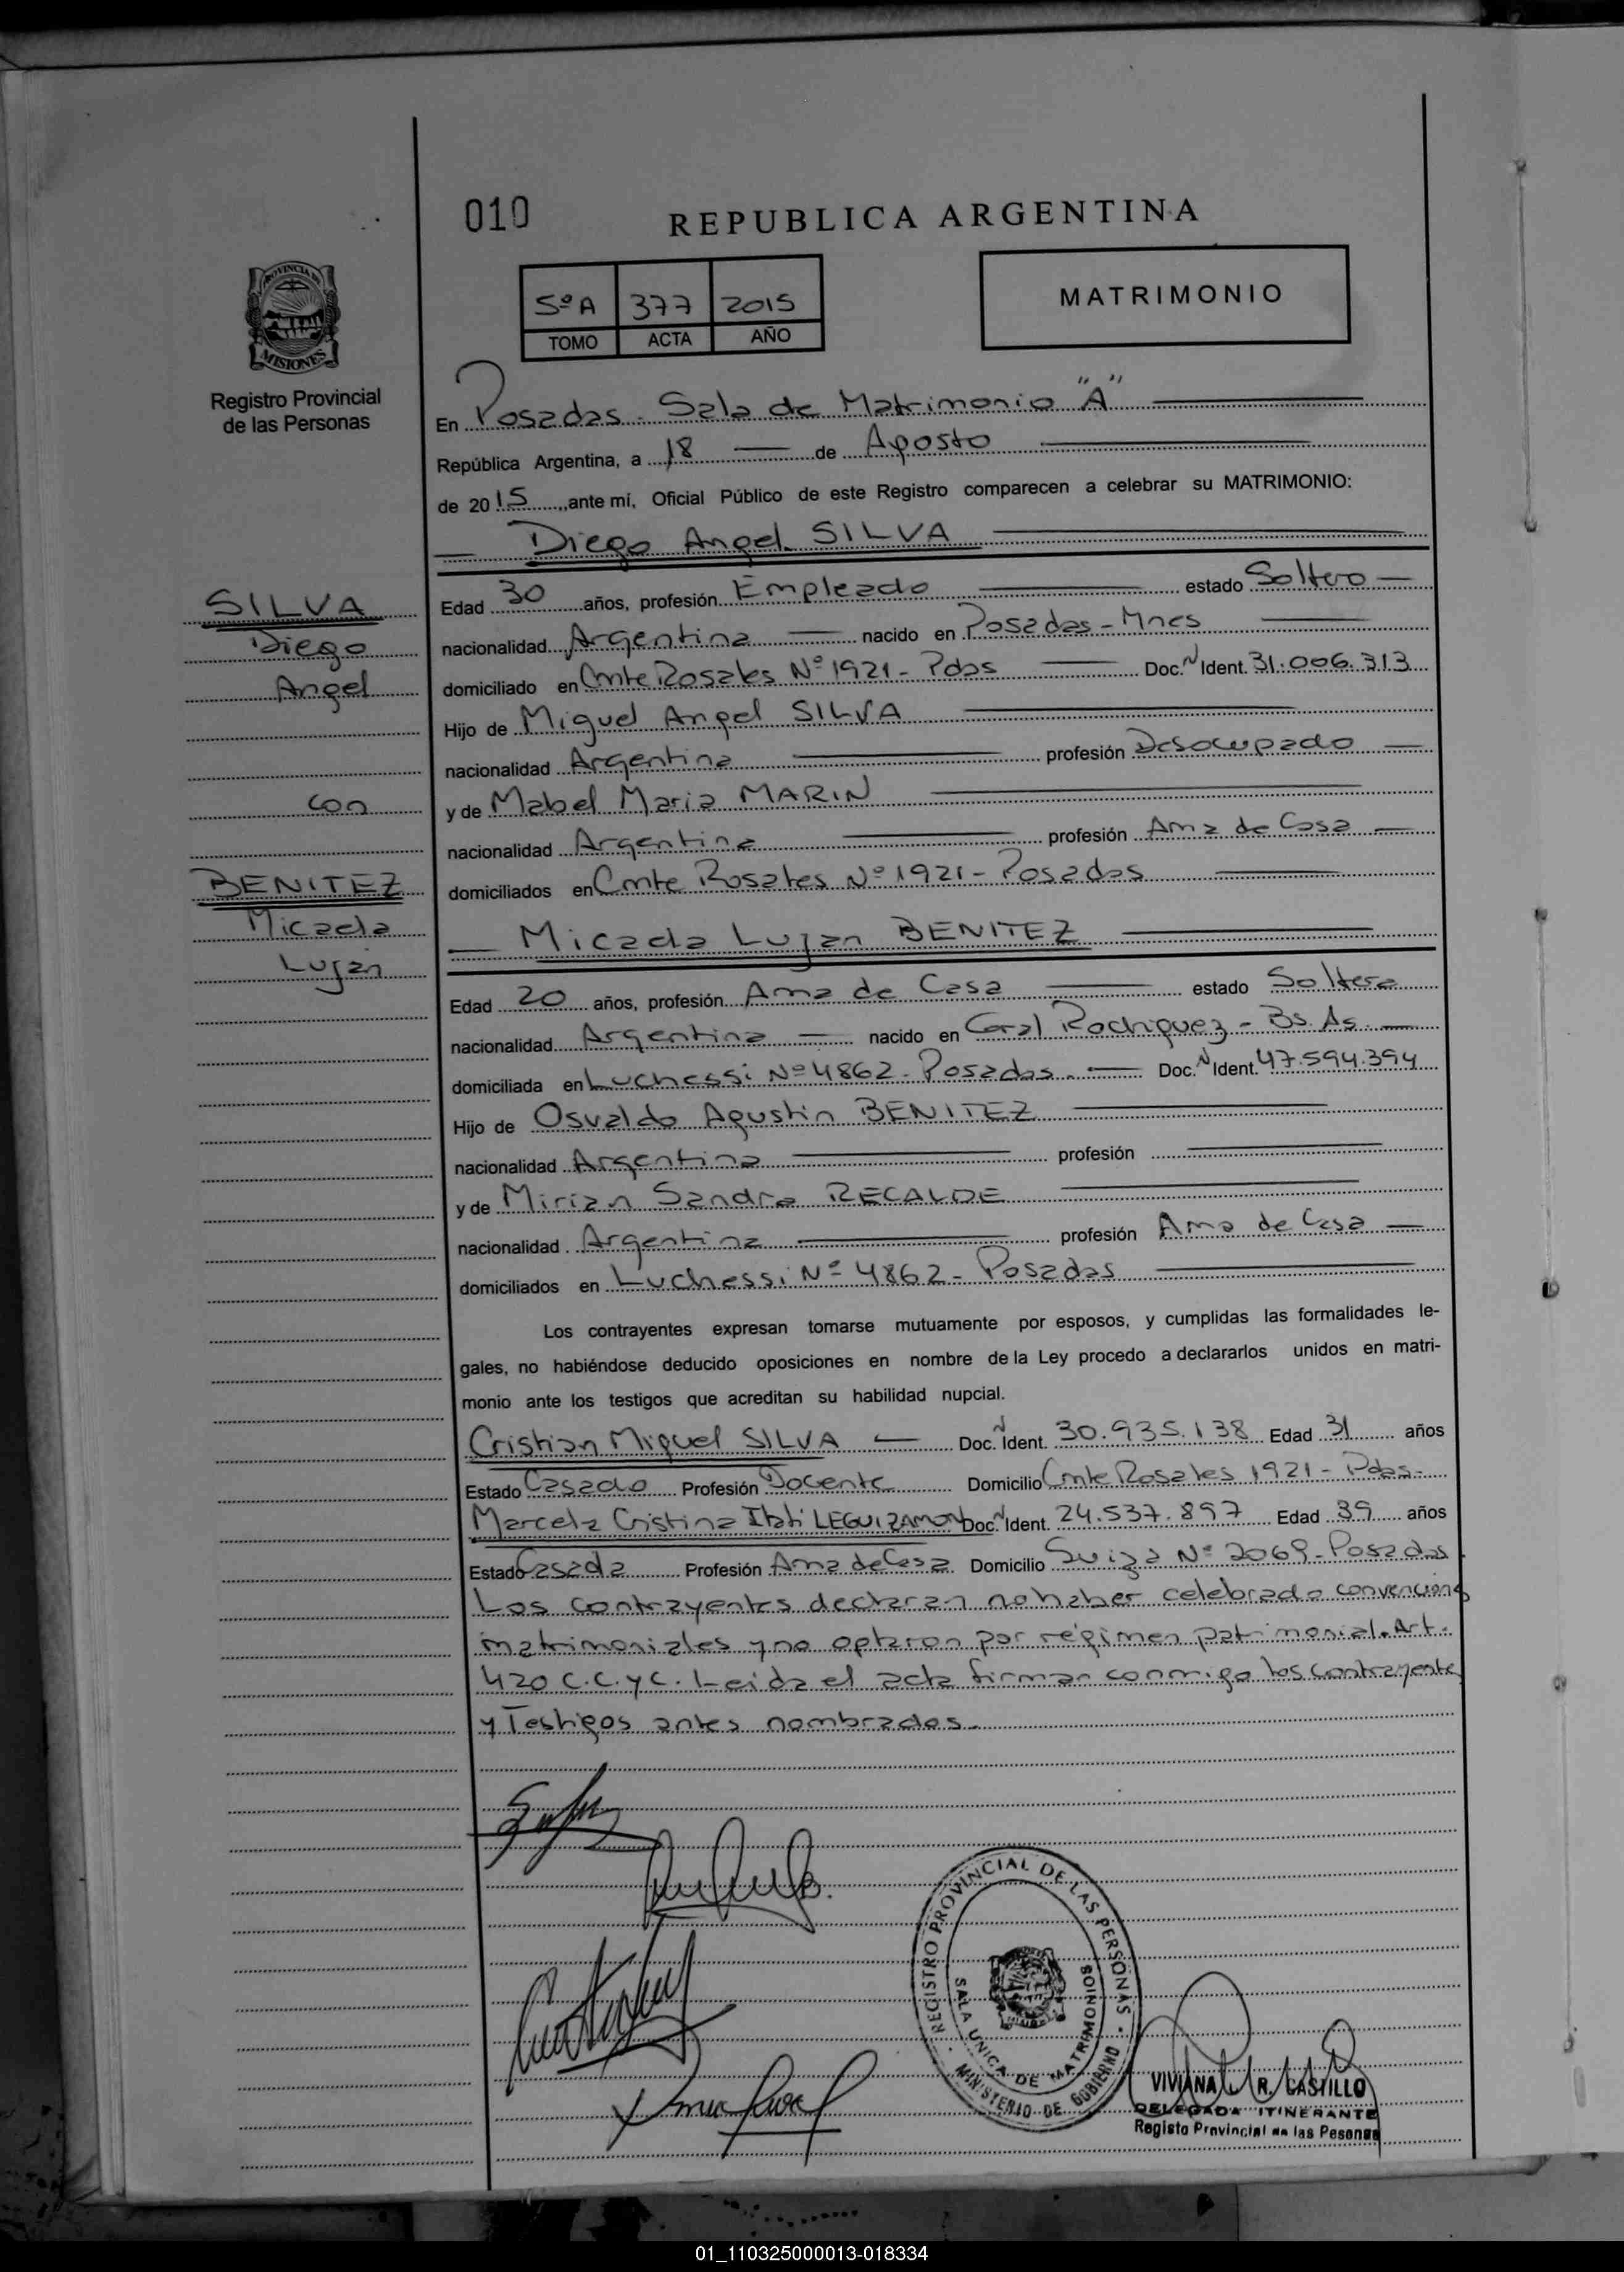 010
REPUBLICA ARGENTINA
PROVINCIA DE
MISIONES
Registro Provincial
de las Personas
5º A 377 2015
TOMO ACTA AÑO
MATRIMONIO
En Posadas - Sala de Matrimonio "A"
República Argentina, a 18 de Agosto
de 2015, ante mí, Oficial Público de este Registro comparecen a celebrar su MATRIMONIO:
Diego Angel SILVA
SILVA
Diego
Angel
con
BENITEZ
Micaela
Lujan
Edad 30 años, profesión Empleado estado Soltero
nacionalidad Argentina nacido en Posadas - Mnes
domiciliado en Cmte Rosales Nº 1921 - Pdas Doc. N Ident. 31.006.313
Hijo de Miguel Angel SILVA
nacionalidad Argentina profesión Desocupado
y de Mabel Maria MARIN
nacionalidad Argentina profesión Ama de Casa
domiciliados en Cmte Rosales Nº 1921 - Posadas
Micaela Lujan BENITEZ
Edad 20 años, profesión Ama de Casa estado Soltera
nacionalidad Argentina nacido en Gral Rodriguez - Bs. As.
domiciliada en Luchessi Nº 4862 - Posadas. Doc. N Ident. 47.594.394
Hijo de Osvaldo Agustin BENITEZ
nacionalidad Argentina profesión
y de Mirian Sandra RECALDE
nacionalidad Argentina profesión Ama de Casa
domiciliados en Luchessi Nº 4862 - Posadas
Los contrayentes expresan tomarse mutuamente por esposos, y cumplidas las formalidades le-
gales, no habiéndose deducido oposiciones en nombre de la Ley procedo a declararlos unidos en matri-
monio ante los testigos que acreditan su habilidad nupcial.
Cristian Miguel SILVA Doc. N Ident. 30.935.138 Edad 31 años
Estado Casado Profesión Docente Domicilio Cmte Rosales 1921 - Pdas.
Marcela Cristina Itati LEGUIZAMON Doc. N Ident. 24.537.897 Edad 39 años
Estado Casada Profesión Ama de Casa Domicilio Suiza Nº 2069 - Posadas
Los contrayentes declaran no haber celebrado convenciones
matrimoniales y no optaron por régimen patrimonial. Art.
420 C.C. y C. Leida el acta firman conmigo los contrayentes
y Testigos antes nombrados.
REGISTRO PROVINCIAL DE LAS PERSONAS
MINISTERIO DE GOBIERNO
SALA UNICA DE MATRIMONIOS
VIVIANA R. CASTILLO
DELEGADA ITINERANTE
Registo Provincial de las Pesonas
01_110325000013-018334